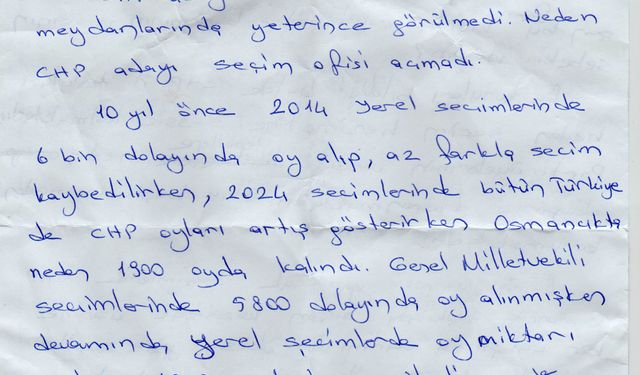 meydanlarında yeterince görülmedi. Neden
CHP adayı seçim ofisi açmadı.
10 yıl önce 2014 yerel seciimlerinde
6 bin dolayında oy alıp, az farkla secim
kaybedilirken, 2024 secimlerinde bütün Türkiye
de CHP oyları artış gösterirken Osmancıkta
neden 1900 oyda kalındı. Genel Milletvekili
secimlerinde 9800 dolayında oy alınmışken
devamında yerel seçimlerde oy miktarı